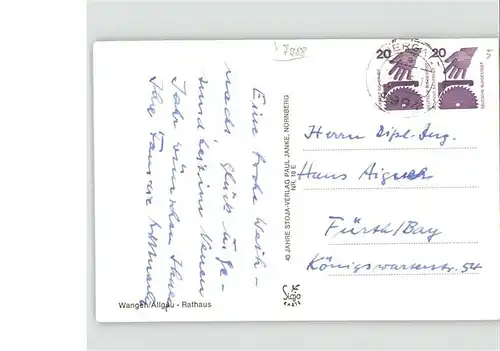 7988
Eine frohe Weih-
nacht, Glück u. Ge-
sundheit im Neuen
Jahr wünschen Ihnen
Ihre Familie
40 JAHRE STOJA-VERLAG PAUL JANKE, NÜRNBERG
NR. 18 E
20
20
DEUTSCHE BUNDESPOST
Herrn Dipl.-Ing.
Hans Aigner
Fürth/Bay
Königswarterstr. 54
Wangen/Allgäu - Rathaus
Stoja